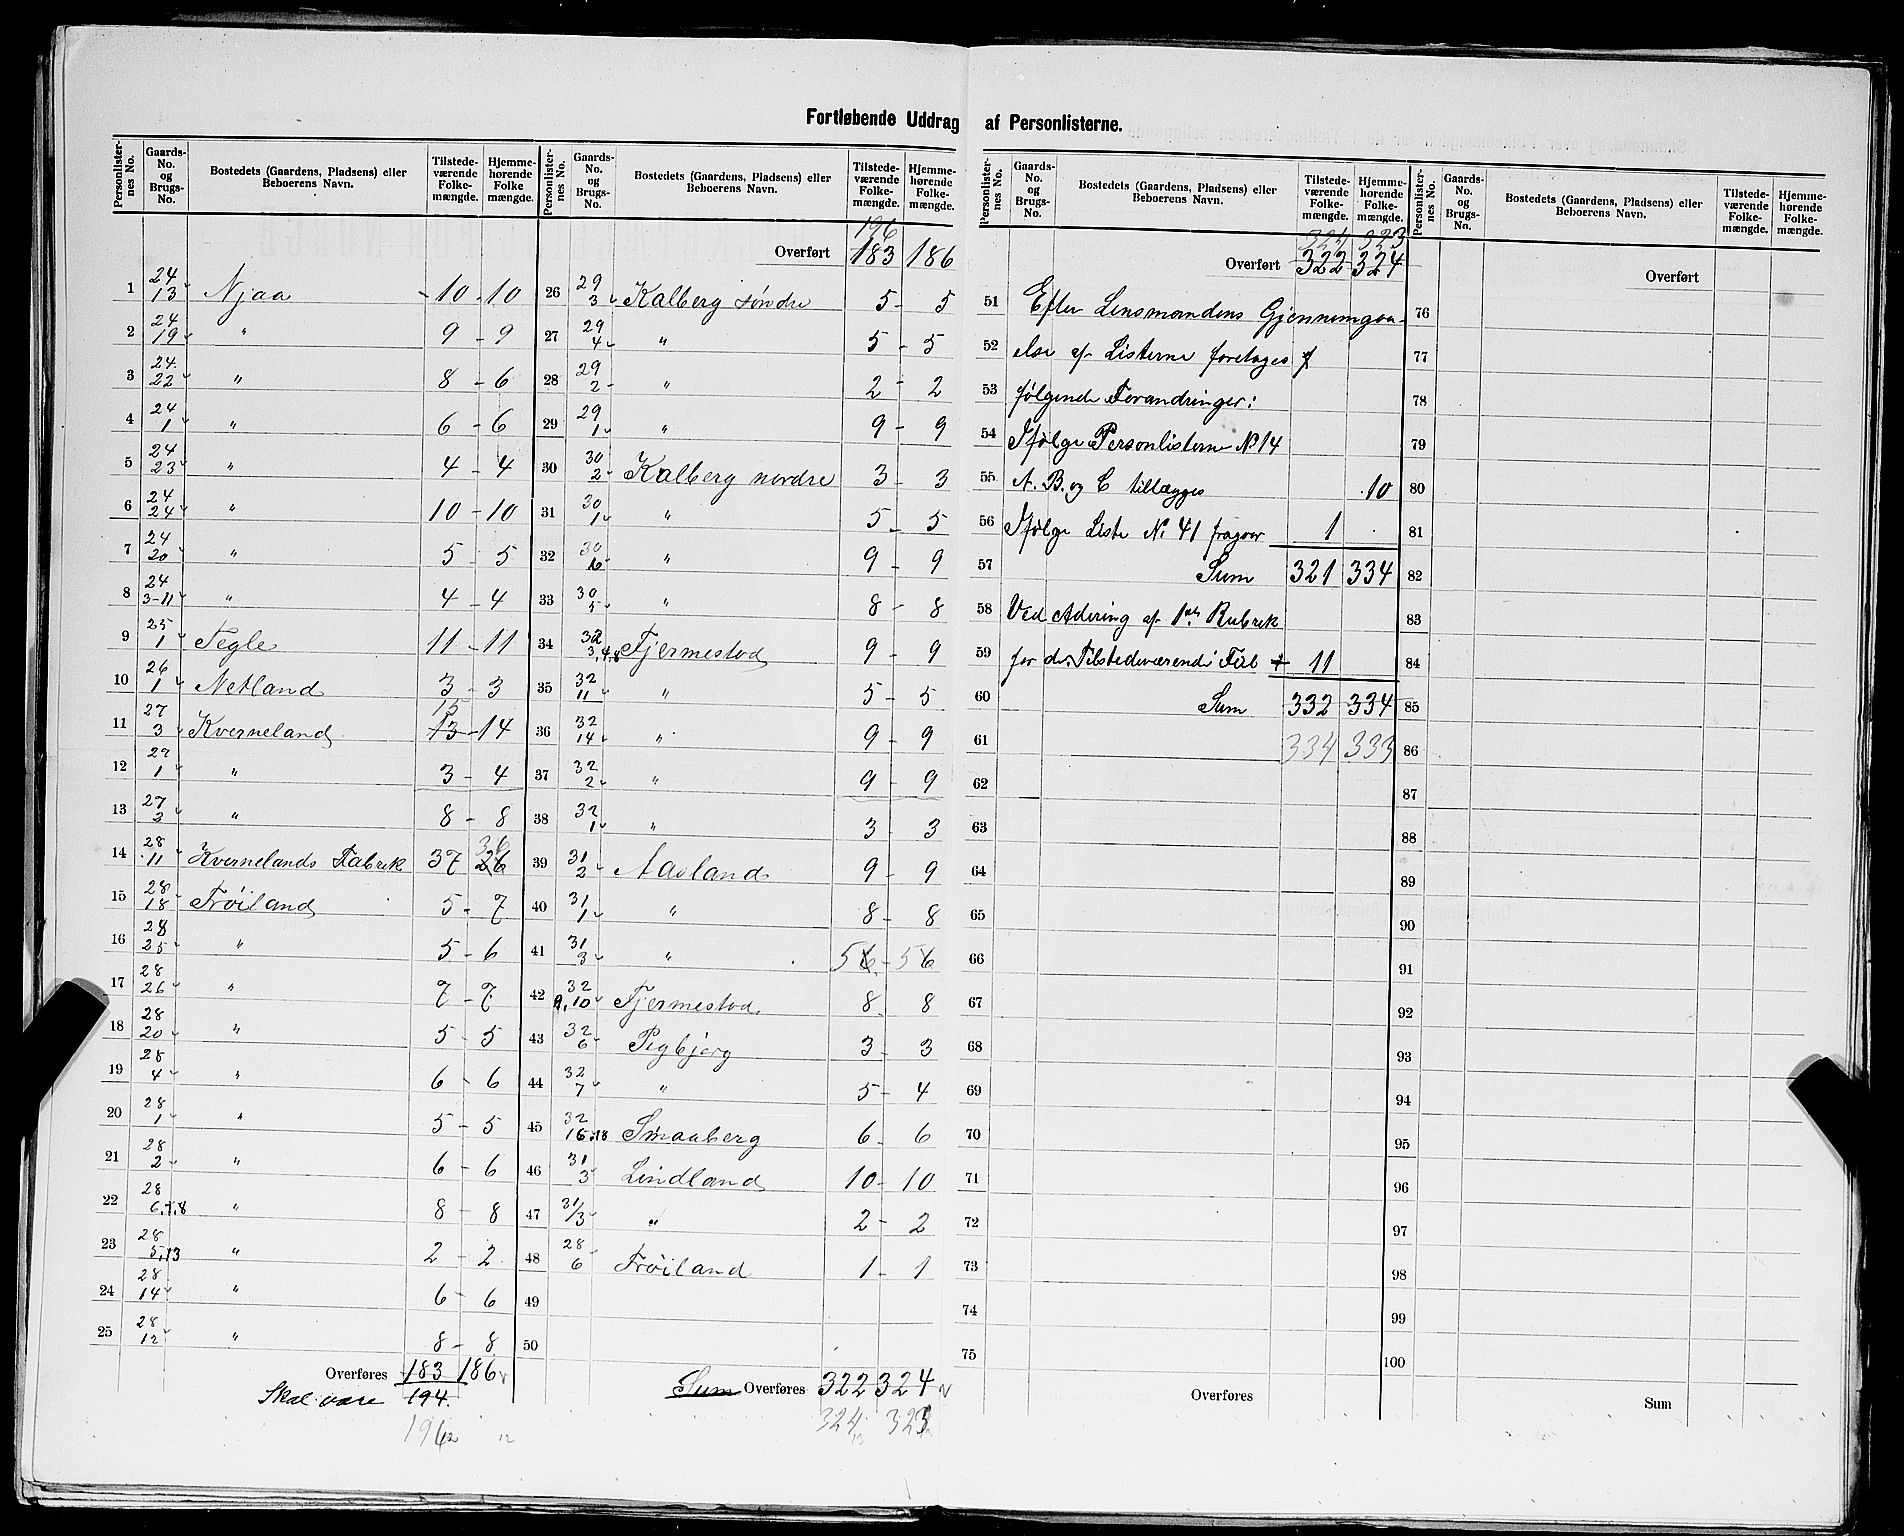 Fortløbende Uddrag af Personlisterne.
Personlister-nes No. | Gaards-No. og Brugs-No. | Bostedets (Gaardens, Pladsens) eller Beboerens Navn. | Tilstede-værende Folke-mængde. | Hjemme-hørende Folke mængde.
1 24/13 Njaa 10 - 10
2 24/19 " 9 - 9
3 24/22 " 8 - 6
4 24/1 " 6 - 6
5 24/23 " 4 - 4
6 24/24 " 10 - 10
7 24/20 " 5 - 5
8 24/3-11 " 4 - 4
9 25/1 Tegle 11 - 11
10 26/1 Netland 3 - 3
11 27/3 Kverneland 13 15 - 14
12 27/1 " 3 - 4
13 27/2 " 8 - 8
14 28/11 Kvernelands Fabrik 37 26 36
15 28/18 Frøiland 5 - 7
16 28/25 " 5 - 6
17 28/26 " 7 - 7
18 28/20 " 5 - 5
19 28/4 " 6 - 6
20 28/1 " 5 - 5
21 28/2 " 6 - 6
22 28/6.7.8 " 8 - 8
23 28/5,13 " 2 - 2
24 28/14 " 6 - 6
25 28/12 " 8 - 8
Overføres 183 186
Skal være 194.
196
12 12
Personlister-nes No. | Gaards-No. og Brugs-No. | Bostedets (Gaardens, Pladsens) eller Beboerens Navn. | Tilstede-værende Folke-mængde. | Hjemme-hørende Folke-mængde.
196
Overført 183 186
26 29/3 Kalberg søndre 5 - 5
27 29/4 " 5 - 5
28 29/2 " 2 - 2
29 29/1 " 9 - 9
30 30/2 Kalberg nordre 3 - 3
31 30/1 " 5 - 5
32 30/6 " 9 - 9
33 30/5 " 8 - 8
34 32/3,4,8 Fjermestad 9 - 9
35 32/11 " 5 - 5
36 32/14 " 9 - 9
37 32/2 " 9 - 9
38 32/1 " 3 - 3
39 31/2 Aasland 9 - 9
40 31/1 " 8 - 8
41 31/3 " 5 6 - 5 6
42 32/9,10 Fjermestad 8 8
43 32/6 Pigbjerg 3 - 3
44 32/7 " 5 - 4
45 32/15.18 Smaaberg 6 - 6
46 31/3 Lindland 10 - 10
47 31/3 " 2 - 2
48 28/6 Frøiland 1 - 1
49
50
Sum Overføres 322 324
324 323
13
Personlister-nes No. | Gaards-No. og Brugs-No. | Bostedets (Gaardens, Pladsens) eller Beboerens Navn. | Tilstede-værende Folke-mængde. | Hjemme-hørende Folke-mængde.
324 323
Overført 322 324
51 Efter Lensmandens Gjennemgaa-
52 else af Listerne foretages
53 følgende Forandringer:
54 Ifølge Personlisterne No 14
55 A. B. og C tillægges 10
56 Ifølge Liste No. 41 fragaar 1
57 Sum 321 334
58 Ved Adering af 1ste Rubrik
59 for de Tilstedeværende Feil + 11
60 Sum 332 334
61 334 333
62
63
64
65
66
67
68
69
70
71
72
73
74
75
Overføres
Personlister-nes No. | Gaards-No. og Brugs-No. | Bostedets (Gaardens, Pladsens) eller Beboerens Navn. | Tilstede-værende Folke-mængde. | Hjemme-hørende Folke-mængde.
Overført
76
77
78
79
80
81
82
83
84
85
86
87
88
89
90
91
92
93
94
95
96
97
98
99
100
Sum